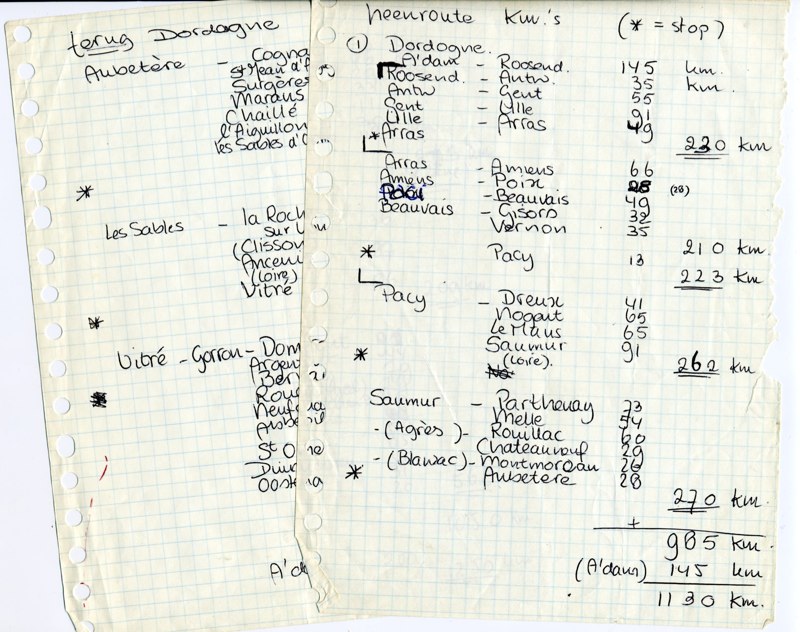 terug Dordogne
Aubetère - Cogna
St Jean d'A
Surgères
Marans
Chaillé
l'Aiguillon
les Sables d'O
*
Les Sables - la Roch
sur
(Clisson
Anceni
(Loire)
Vitré
*
Vitré - Gorron - Dom
Argen
Ber
Rou
Neufc
Abbe
St O
Duin
Oost
A'da
heenroute Km.'s (* = stop)
① Dordogne.
A'dam - Roosend. 145 km.
Roosend. - Antw. 35 km.
Antw - Gent 55
Gent - Lille 91
Lille - Arras 49
* Arras
230 km
Arras - Amiens 66
Amiens - Poix 28 (28)
Poix - Beauvais 49
Beauvais - Gisors 32
Vernon 35
210 km.
* Pacy 13
223 km.
Pacy - Dreux 41
Nogent 65
Le Mans 65
Saumur 91
* (Loire).
262 km.
Saumur - Parthenay 73
Melle 54
- (Agrès) - Rouillac 60
Chateauneuf 29
- (Blanzac) - Montmoreau 26
* Aubetère 28
270 km.
+
985 km.
(A'dam) 145 km
1130 km.